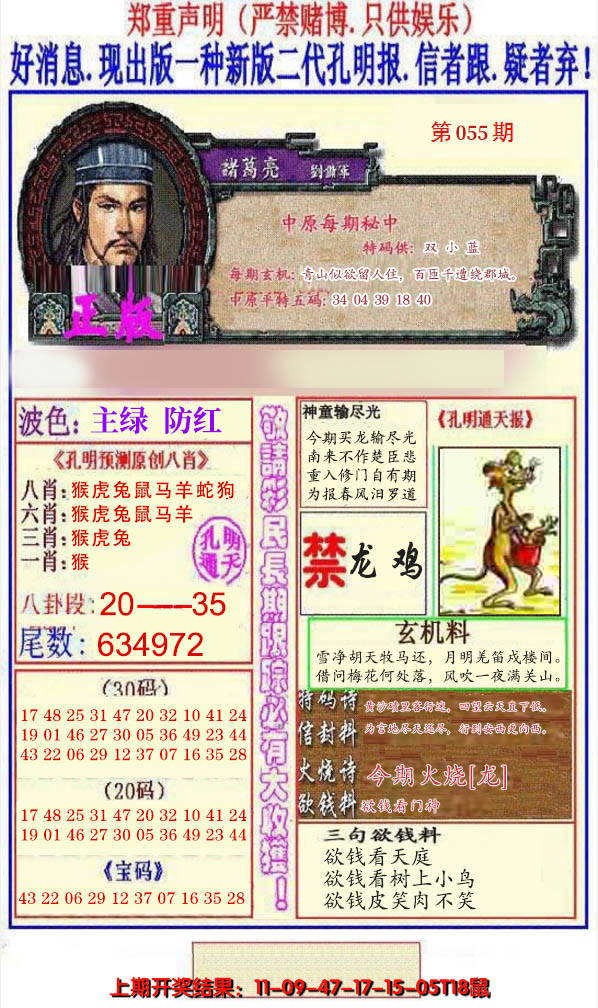 郑重声明（严禁赌博.只供娱乐）
好消息.现出版一种新版二代孔明报.信者跟.疑者弃！
第055期
諸葛亮 劉備軍
中原每期秘中
特码供：双小蓝
每期玄机：青山似欲留人住，百匝千遭绕郡城。
中原平特五码：34 04 39 18 40
正版
波色：主绿 防红
《孔明预测原创八肖》
八肖：猴虎兔鼠马羊蛇狗
六肖：猴虎兔鼠马羊
三肖：猴虎兔
一肖：猴
孔明通天
八卦段：20——35
尾数：634972
（30码）
17 48 25 31 47 20 32 10 41 24
19 01 46 27 30 05 36 49 23 44
43 22 06 29 12 37 07 16 35 28
（20码）
17 48 25 31 47 20 32 10 41 24
19 01 46 27 30 05 36 49 23 44
《宝码》
43 22 06 29 12 37 07 16 35 28
敬請彩民長期跟踪必有大收獲！
神童输尽光
今期买龙输尽光
南来不作楚臣悲
重入修门自有期
为报春风汨罗道
《孔明通天报》
禁龙鸡
玄机料
雪净胡天牧马还，月明羌笛戍楼间。
借问梅花何处落，风吹一夜满关山。
特码诗
信封料
黄沙碛里客行迷，四望云天直下低。
为言地尽天还尽，行到安西更向西。
火烧诗
今期火烧[龙]
欲钱料
欲钱看门神
三句欲钱料
欲钱看天庭
欲钱看树上小鸟
欲钱皮笑肉不笑
上期开奖结果：11-09-47-17-15-05T18鼠